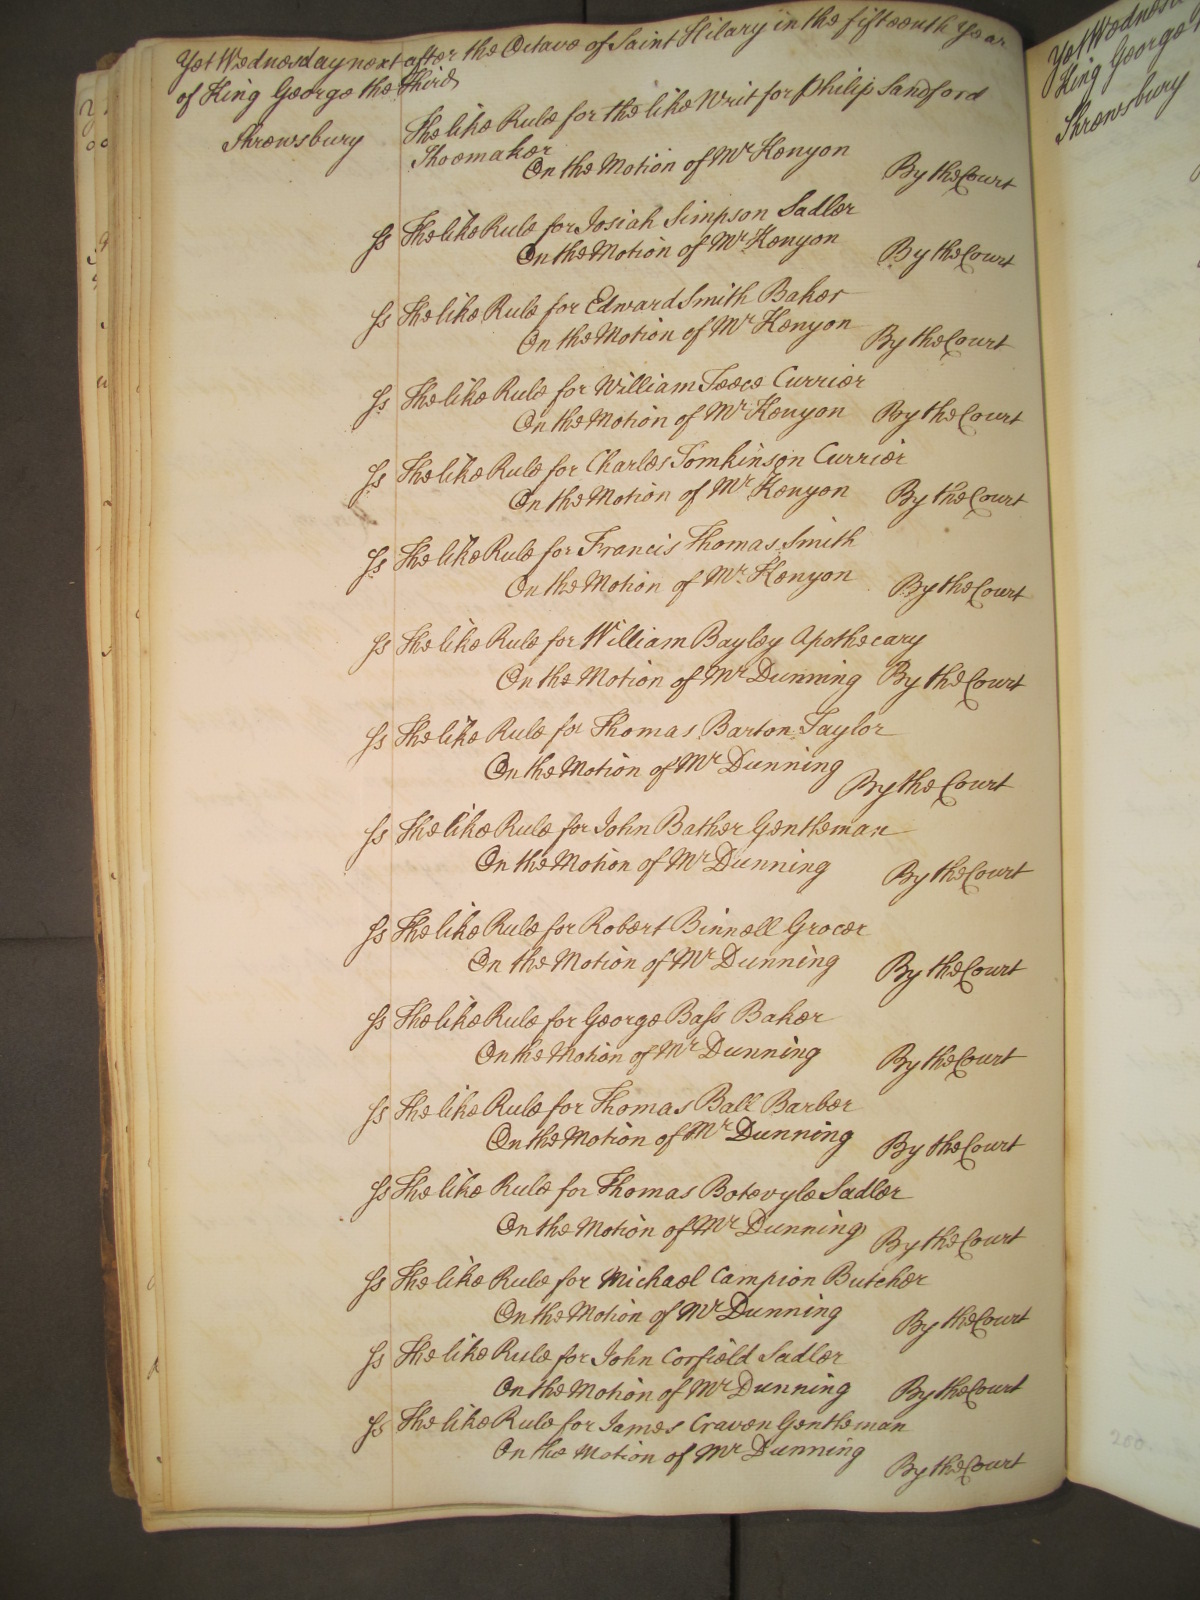 Yet Wednesday next after the Octave of Saint Hilary in the fifteenth Year
of King George the Third
Shrewsbury The like Rule for the like Writ for Philip Sandford
Shoemaker
On the Motion of Mr Kenyon By the Court
Ss The like Rule for Josiah Simpson Sadler
On the Motion of Mr Kenyon By the Court
Ss The like Rule for Edward Smith Baker
On the Motion of Mr Kenyon By the Court
Ss The like Rule for William Teece Currier
On the Motion of Mr Kenyon By the Court
Ss The like Rule for Charles Tomkinson Currier
On the Motion of Mr Kenyon By the Court
Ss The like Rule for Francis Thomas Smith
On the Motion of Mr Kenyon By the Court
Ss The like Rule for William Bayley Apothecary
On the Motion of Mr Dunning By the Court
Ss The like Rule for Thomas Barton Taylor
On the Motion of Mr Dunning By the Court
Ss The like Rule for John Bather Gentleman
On the Motion of Mr Dunning By the Court
Ss The like Rule for Robert Binnell Grocer
On the Motion of Mr Dunning By the Court
Ss The like Rule for George Bass Baker
On the Motion of Mr Dunning By the Court
Ss The like Rule for Thomas Ball Barber
On the Motion of Mr Dunning By the Court
Ss The like Rule for Thomas Botevyle Sadler
On the Motion of Mr Dunning By the Court
Ss The like Rule for Michael Campion Butcher
On the Motion of Mr Dunning By the Court
Ss The like Rule for John Corfield Sadler
On the Motion of Mr Dunning By the Court
Ss The like Rule for James Craven Gentleman
On the Motion of Mr Dunning By the Court
Yet Wednesd
King George
Shrewsbury